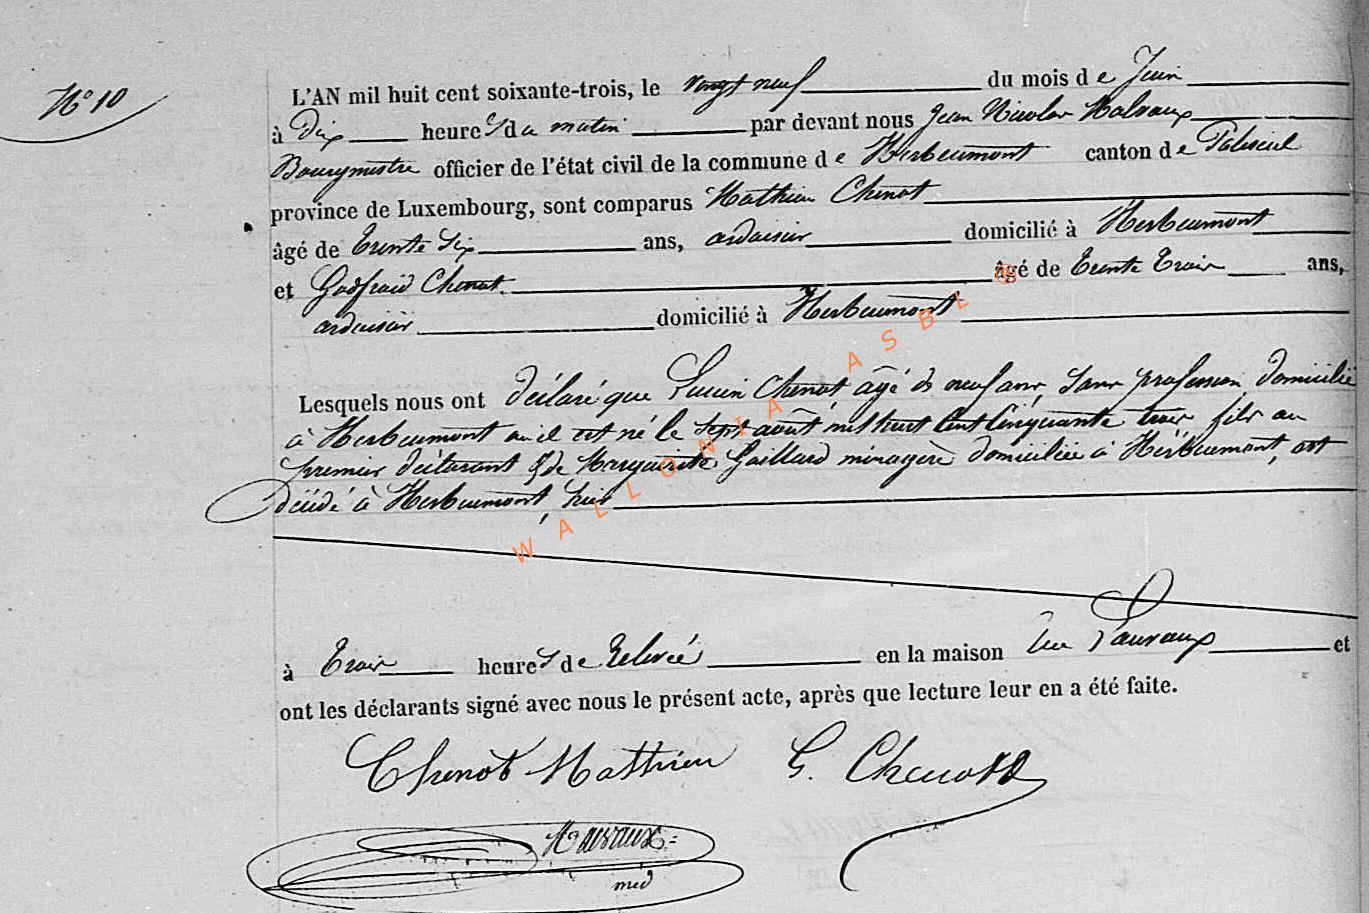 N° 10
L'AN mil huit cent soixante-trois, le vingt neuf du mois de Juin
à Dix heures du matin par devant nous Jean Nicolas Malvaux
Bourgmestre officier de l'état civil de la commune de Herbeumont canton de Paliseul
province de Luxembourg, sont comparus Mathieu Chenot
âgé de trente six ans, ardoisier domicilié à Herbeumont
et Godfroid Chenot âgé de trente trois ans,
ardoisier domicilié à Herbeumont
Lesquels nous ont déclaré que Lucien Chenot âgé de neuf ans, sans profession domicilié
à Herbeumont où il est né le sept août mil huit cent cinquante trois fils du
premier déclarant & de Marguerite Gaillard ménagère domiciliée à Herbeumont, est
décédé à Herbeumont, hier
à trois heures de Relevée en la maison et
ont les déclarants signé avec nous le présent acte, après que lecture leur en a été faite.
Chenot Mathieu G. Chenot
WALLONIA ASBL ©